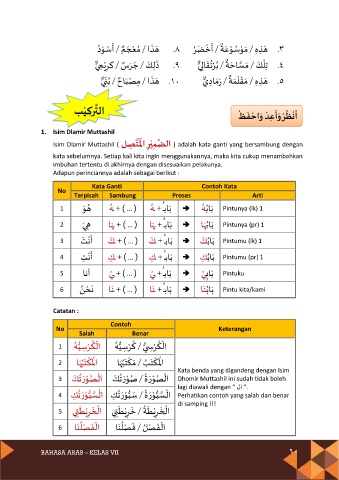 ٣. هٰذِهِ / مَوْسُوْعَةٌ / أَخْضَرُ
٨. هٰذَا / مُعْجَمٌ / أَسْوَدُ
٤. تِلْكَ / مَسَّاحَةٌ / بُرْتُقَالِيٌّ
٩. ذٰلِكَ / جَرَسٌ /
٥. هٰذِهِ / مِقْلَمَةٌ / رَمَادِيٌّ
١٠. هٰذَا / مِصْبَاحٌ / بُنِّيٌّ
التَّرْكِيْب
أُنْظُرْ وَعِدْ وَاحْفَظْ
1. Isim Dlamir Muttashil
Isim Dlamir Muttashil ( الضَّمِيْرُ الْمُتَّصِلُ ) adalah kata ganti yang bersambung dengan
kata sebelumnya. Setiap kali kita ingin menggunakannya, maka kita cukup menambahkan
imbuhan tertentu di akhirnya dengan disesuaikan pelakunya.
Adapun perinciannya adalah sebagai berikut :
No Kata Ganti Contoh Kata
Terpisah Sambung Proses Arti
1 هُوَ (...) + ـهُ بَابُـ + ـهُ ➔ بَابُهُ Pintunya (lk) 1
2 هِيَ (...) + ـهَا بَابُـ + ـهَا ➔ بَابُهَا Pintunya (pr) 1
3 أَنْتَ (...) + ـكَ بَابُـ + ـكَ ➔ بَابُكَ Pintumu (lk) 1
4 أَنْتِ (...) + ـكِ بَابُـ + ـكِ ➔ بَابُكِ Pintumu (pr) 1
5 أَنَا (...) + ـيْ بَابُـ + ـيْ ➔ بَابِيْ Pintuku
6 نَحْنُ (...) + ـنَا بَابُـ + ـنَا ➔ بَابُنَا Pintu kita/kami
Catatan :
No Contoh Keterangan
Salah Benar
1 الْكُرْسِيُّهُ الْكُرْسِيُّ / كُرْسِيُّهُ
2 الْمَكْتَبُهَا الْمَكْتَبُ / مَكْتَبُهَا
3 الصُّوْرَتُكَ الصُّوْرَةُ / صُوْرَتُكَ
4 السَّبُّوْرَتُكِ السَّبُّوْرَةُ / سَبُّوْرَتُكِ
5 الْخَرِيْطَتِيْ الْخَرِيْطَةُ / خَرِيْطَتِيْ
6 الْفَصْلُنَا الْفَصْلُ / فَصْلُنَا
Kata benda yang digandeng dengan Isim
Dhomir Muttashil ini sudah tidak boleh
lagi diawali dengan " ال ".
Perhatikan contoh yang salah dan benar
di samping !!!
BAHASA ARAB – KELAS VII